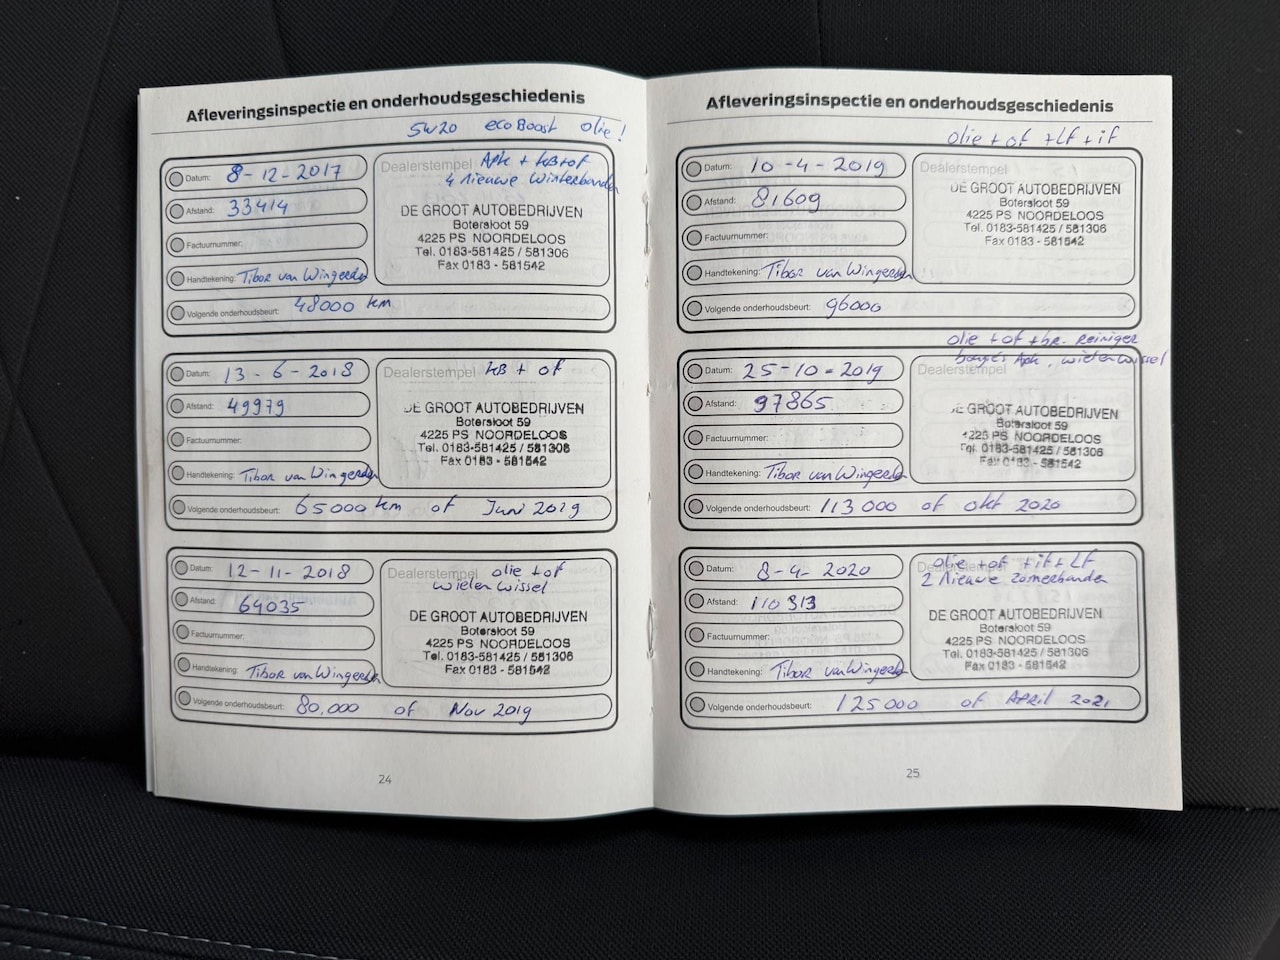 Afleveringsinspectie en onderhoudsgeschiedenis
5W20 ecoBoost olie!
Datum: 8-12-2017
Dealerstempel Apk + kB+of
4 Nieuwe Winterbanden
Afstand: 33414
DE GROOT AUTOBEDRIJVEN
Botersloot 59
4225 PS NOORDELOOS
Tel. 0183-581425 / 581306
Fax 0183 - 581542
Factuurnummer:
Handtekening: Tibor van Wingerden
Volgende onderhoudsbeurt: 48000 km
Datum: 13-6-2018
Dealerstempel kB + of
Afstand: 49979
DE GROOT AUTOBEDRIJVEN
Botersloot 59
4225 PS NOORDELOOS
Tel. 0183-581425 / 581306
Fax 0183 - 581542
Factuurnummer:
Handtekening: Tibor van Wingerden
Volgende onderhoudsbeurt: 65000 km of Juni 2019
Datum: 12-11-2018
Dealerstempel olie + of
wielenwissel
Afstand: 64035
DE GROOT AUTOBEDRIJVEN
Botersloot 59
4225 PS NOORDELOOS
Tel. 0183-581425 / 581306
Fax 0183 - 581542
Factuurnummer:
Handtekening: Tibor van Wingerden
Volgende onderhoudsbeurt: 80,000 of Nov 2019
24
Afleveringsinspectie en onderhoudsgeschiedenis
olie + of + Lf + if
Datum: 10-4-2019
Dealerstempel
Afstand: 81609
DE GROOT AUTOBEDRIJVEN
Botersloot 59
4225 PS NOORDELOOS
Tel. 0183-581425 / 581306
Fax 0183 - 581542
Factuurnummer:
Handtekening: Tibor van Wingerden
Volgende onderhoudsbeurt: 96000
olie + of + br. Reiniger
Apk, wielenwissel
Datum: 25-10-2019
Dealerstempel
Afstand: 97865
DE GROOT AUTOBEDRIJVEN
Botersloot 59
4225 PS NOORDELOOS
Tel. 0183-581425 / 581306
Fax 0183 - 581542
Factuurnummer:
Handtekening: Tibor van Wingerden
Volgende onderhoudsbeurt: 113000 of okt 2020
Datum: 8-4-2020
Dealerstempel olie + of + if + Lf
2 Nieuwe zomerbanden
Afstand: 110313
DE GROOT AUTOBEDRIJVEN
Botersloot 59
4225 PS NOORDELOOS
Tel. 0183-581425 / 581306
Fax 0183 - 581542
Factuurnummer:
Handtekening: Tibor van Wingerden
Volgende onderhoudsbeurt: 125000 of April 2021
25